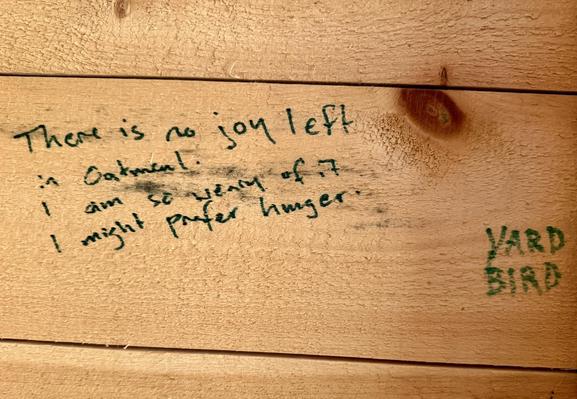 There is no joy left
in Oatmeal.
I am so weary of it
I might prefer hunger.
YARD
BIRD